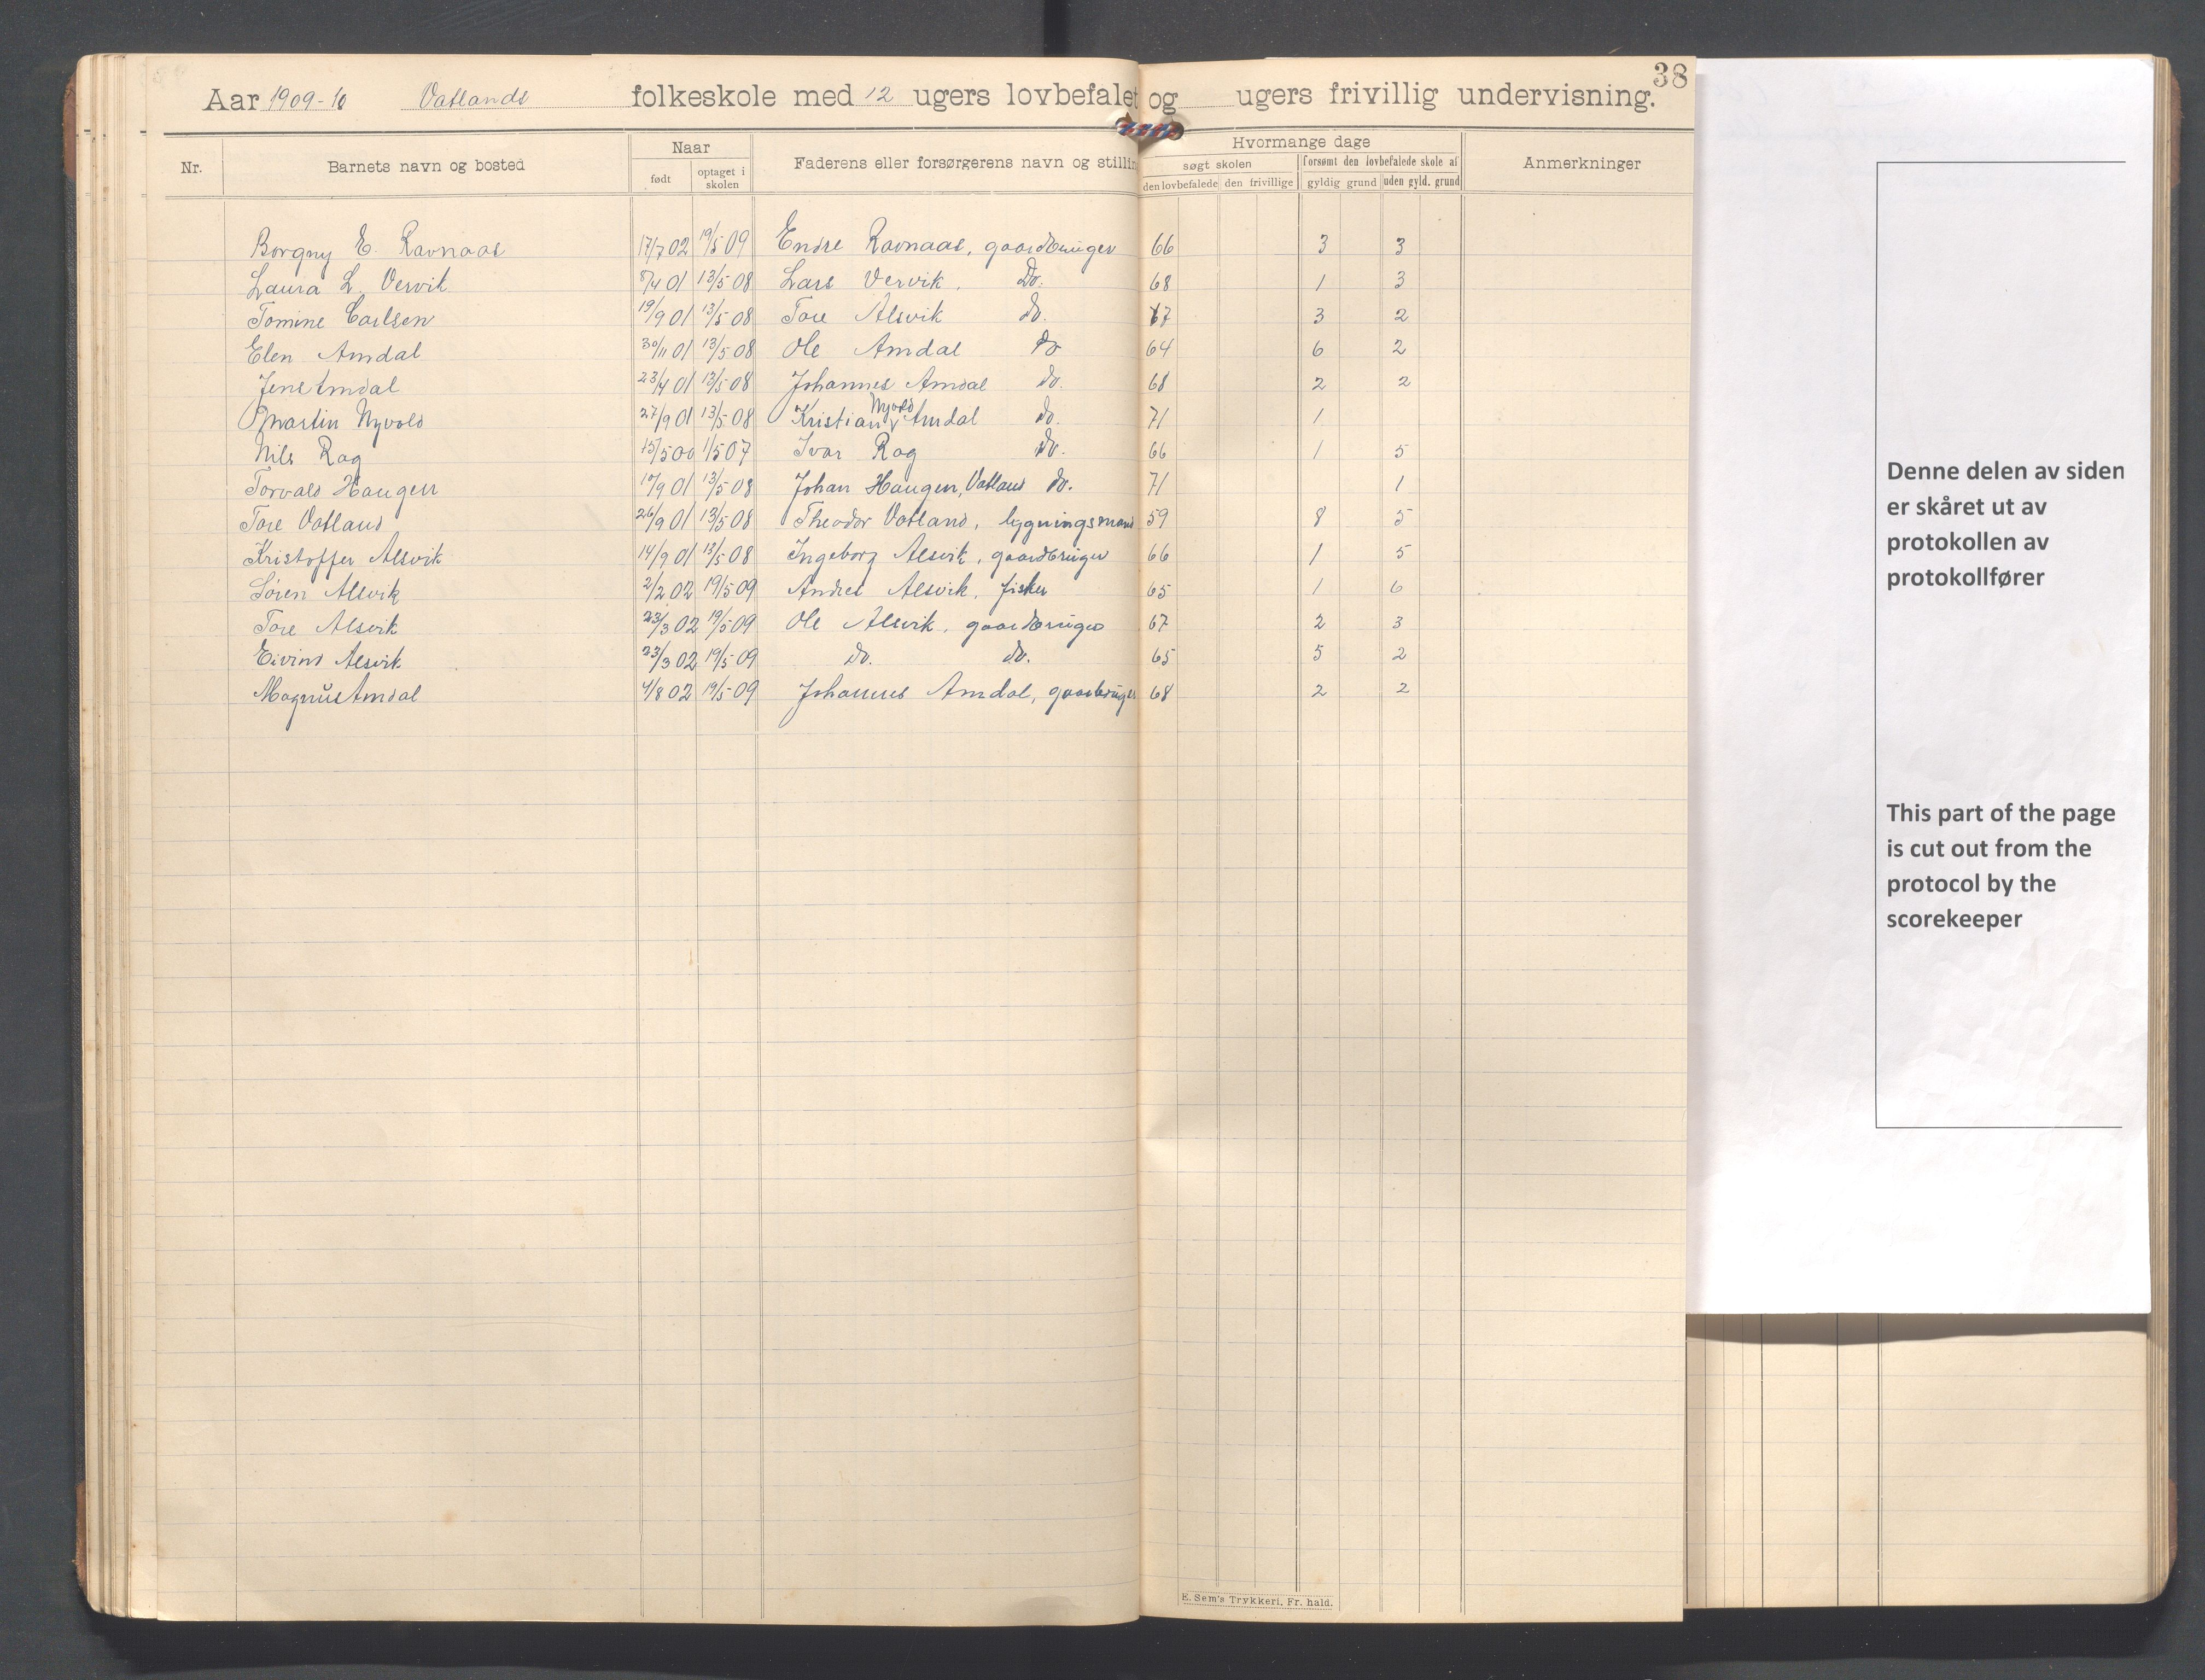 38
Aar 1909-10 Vatlands folkeskole med 12 ugers lovbefalet og ugers frivillig undervisning.
Nr. Barnets navn og bosted Naar Faderens eller forsørgerens navn og stillin Hvormange dage Anmerkninger
født optaget i skolen søgt skolen forsømt den lovbefalede skole af
den lovbefalede den frivillige gyldig grund uden gyld. grund
Borgny E. Ravnaas 17/7 02 19/5 09 Endre Ravnaas, gaardbruger 66 3 3
Laura L. Vervik 8/4 01 13/5 08 Lars Vervik, Do. 68 1 3
Tomine Carlsen 19/9 01 13/5 08 Tore Alsvik do. 67 3 2
Elen Amdal 30/11 01 13/5 08 Ole Amdal do 64 6 2
Jens Amdal 23/4 01 13/5 08 Johannes Amdal do. 68 2 2
Martin Nyvold 27/9 01 13/5 08 Kristian Nyvold Amdal do. 71 1
Nils Rag 15/5 00 1/5 07 Ivar Rag do. 66 1 5
Torvald Haugen 17/9 01 13/5 08 Johan Haugen, Vatland do. 71 1
Tore Vatland 26/9 01 13/5 08 Theodor Vatland, bygningsmand 59 8 5
Kristoffer Alsvik 14/9 01 13/5 08 Ingeborg Alsvik, gaardbruger 66 1 5
Søren Alsvik 2/2 02 19/5 09 Andres Alsvik, fisker 65 1 6
Tore Alsvik 23/3 02 19/5 09 Ole Alsvik, gaardbruger 67 2 3
Eivind Alsvik 23/3 02 19/5 09 do. do. 65 5 2
Magnus Amdal 4/8 02 19/5 09 Johannes Amdal, gaardbruger 68 2 2
E. Sem's Trykkeri, Fr. hald.
Denne delen av siden
er skåret ut av
protokollen av
protokollfører
This part of the page
is cut out from the
protocol by the
scorekeeper